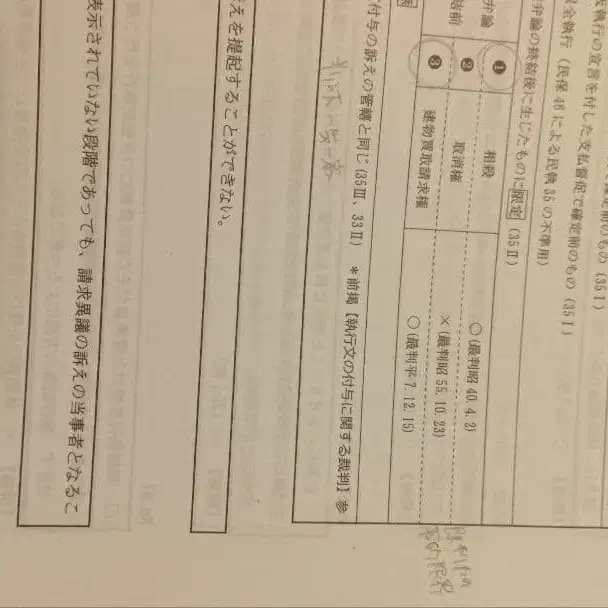 のもの (35Ⅰ)
執行の宣言を付した支払督促で確定前のもの (35Ⅰ)
全執行 (民保 46 による民執 35 の不準用)
弁論の終結後に生じたものに限定 (35Ⅱ)
弁論
結前
❶ 相殺 ○(最判昭 40.4.2)
❷ 取消権 ×(最判昭 55.10.23)
❸ 建物買取請求権 ○(最判平 7.12.15)
付与の訴えの管轄と同じ (35Ⅲ、33Ⅱ) *前掲【執行文の付与に関する裁判】参
えを提起することができない。
表示されていない段階であっても、請求異議の訴えの当事者となるこ